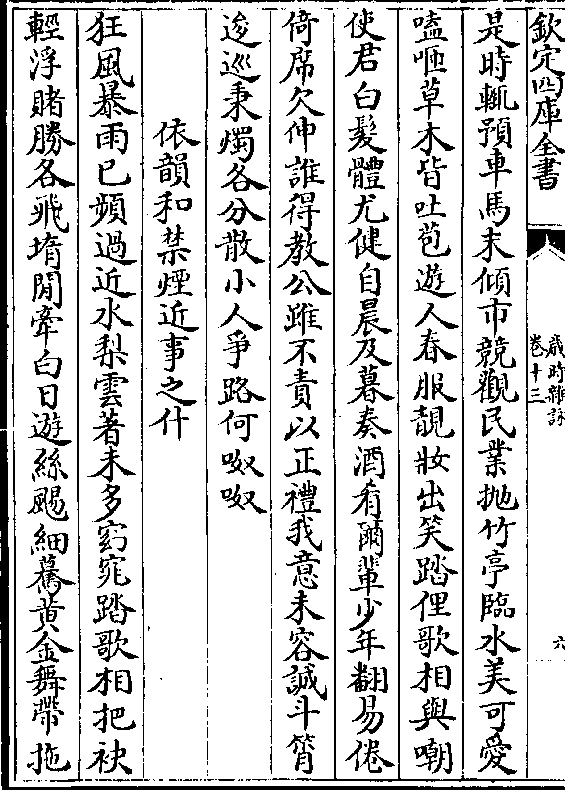 欽定四庫全書
歲時雜詠
卷十三
六
是時輒預車馬末傾市競觀民業抛竹亭臨水美可愛
嗑咂草木皆吐苞遊人春服靚妝出笑踏俚歌相與嘲
使君白髮體尤健自晨及暮奏酒肴爾輩少年翻易倦
倚席欠伸誰得教公雖不責以正禮我意未容誠斗筲
逡巡秉燭各分散小人爭路何呶呶
依韻和禁煙近事之什
狂風暴雨已頻過近水梨雲著未多窈窕踏歌相把袂
輕浮賭勝各飛堶閒牽白日遊絲颺細蕚黃金舞帶拖